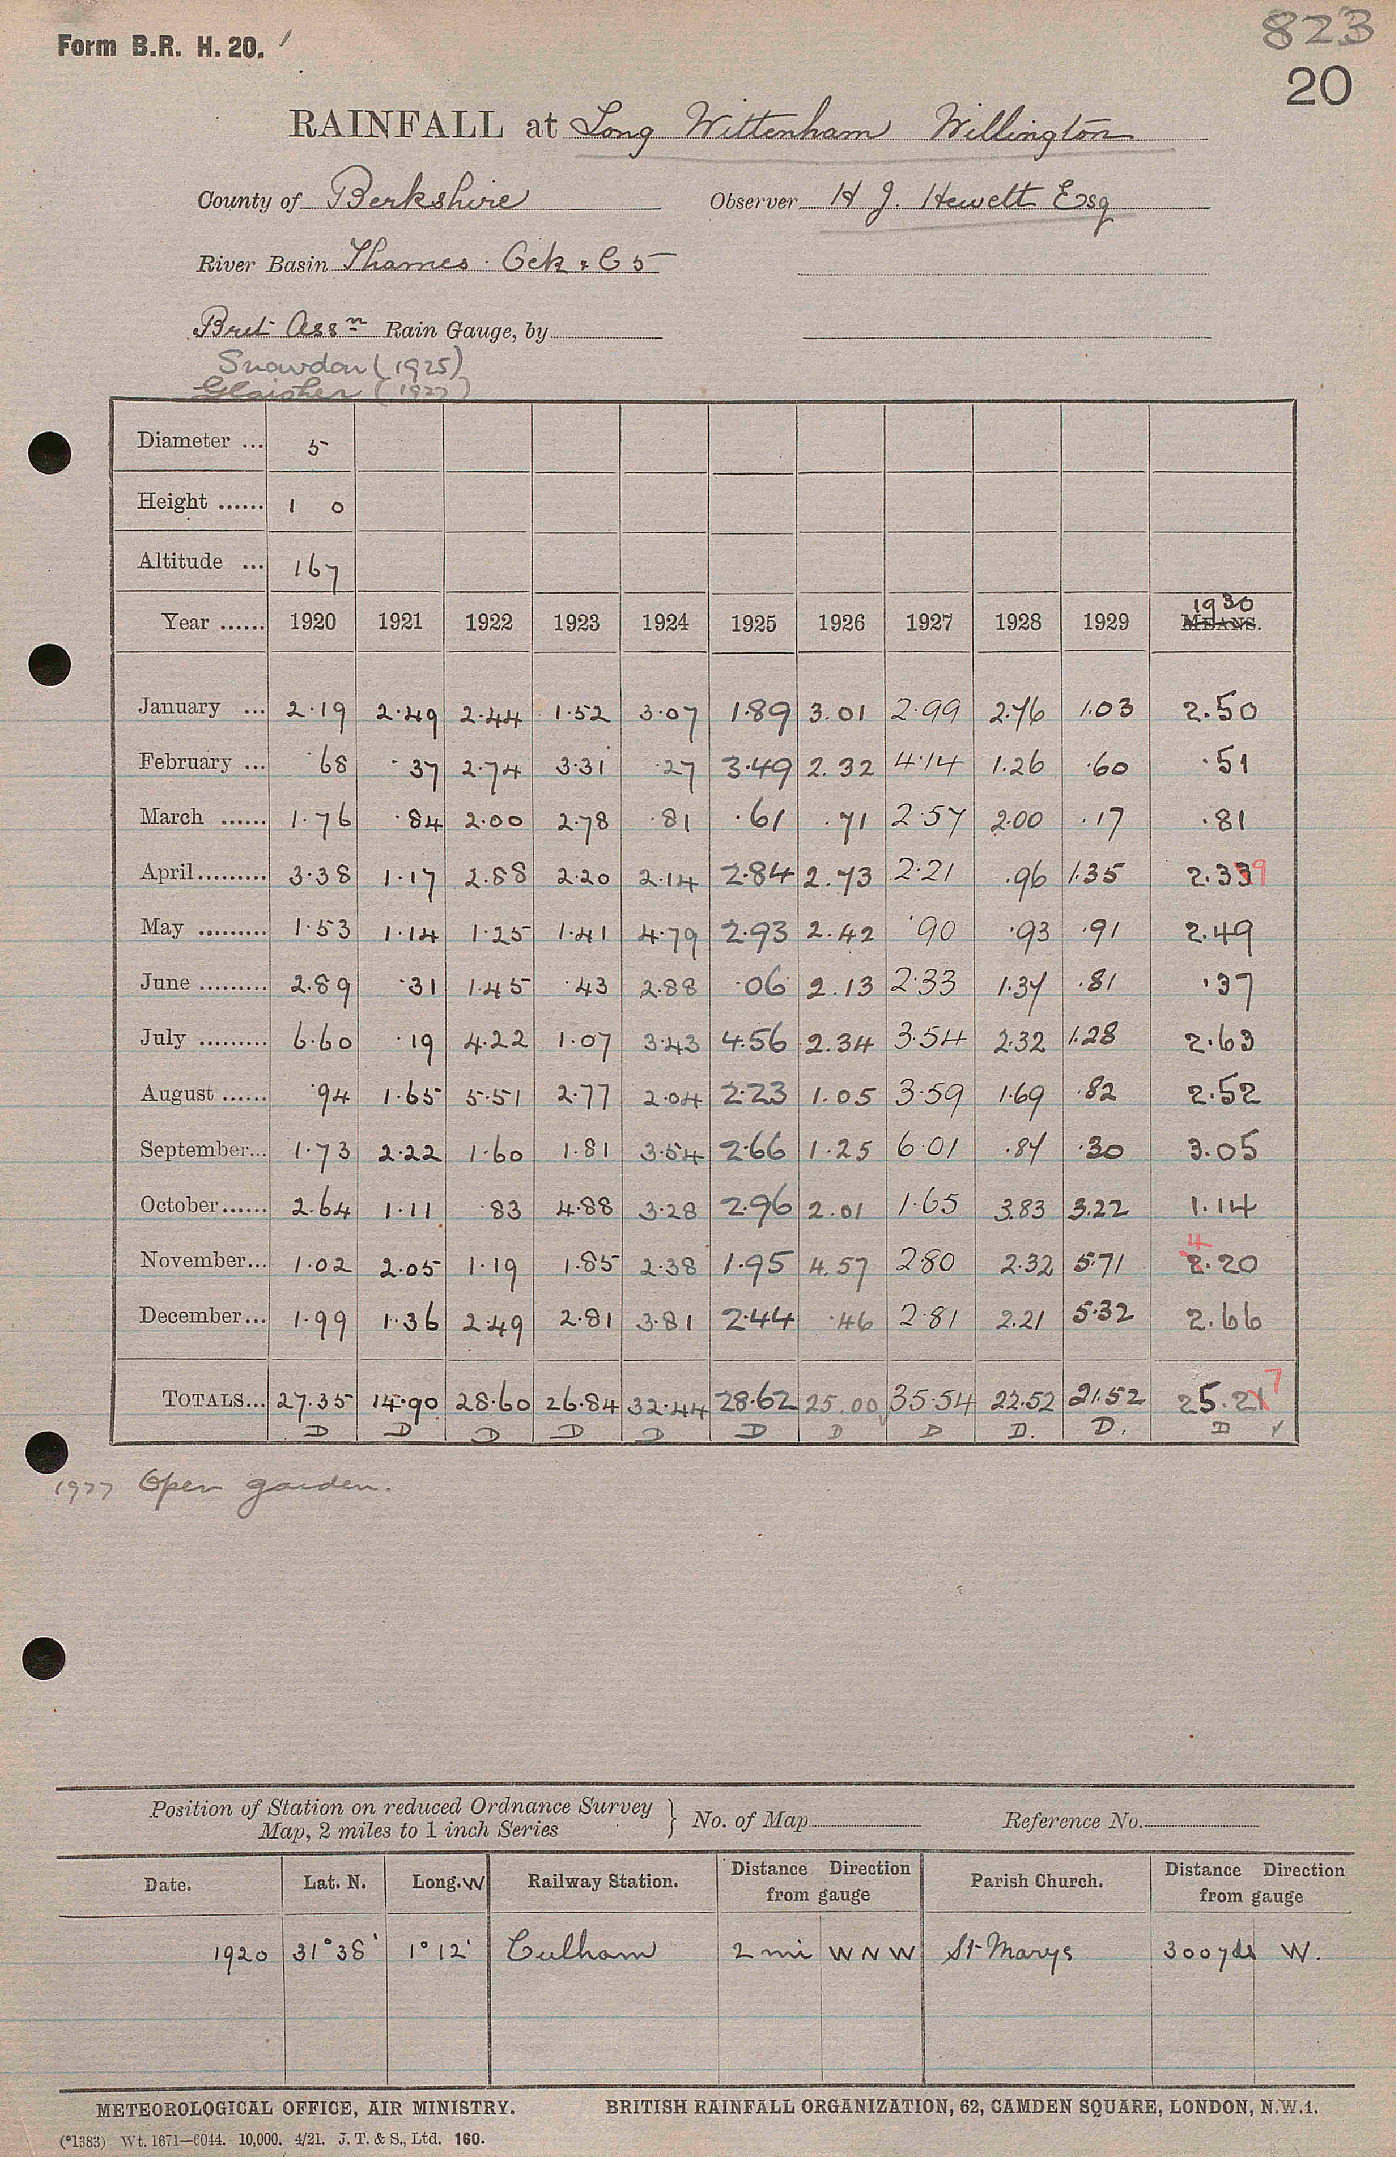 Form B.R. H. 20.
823
20
RAINFALL at Long Wittenham Willington
County of Berkshire Observer H J. Hewett Esq
River Basin Thames . Ock & C 5
Brit Assn Rain Gauge, by
Snowdon (1925)
Glaisher (1927)
Diameter ... 5
Height ...... 1 0
Altitude ... 167
1930
Year ...... 1920 1921 1922 1923 1924 1925 1926 1927 1928 1929 MEANS.
January ... 2.19 2.49 2.44 1.52 3.07 1.89 3.01 2.99 2.76 1.03 2.50
February ... .68 .37 2.74 3.31 .27 3.49 2.32 4.14 1.26 .60 .51
March ...... 1.76 .84 2.00 2.78 .81 .61 .71 2.57 2.00 .17 .81
April......... 3.38 1.17 2.88 2.20 2.14 2.84 2.73 2.21 .96 1.35 2.339
May ......... 1.53 1.14 1.25 1.41 4.79 2.93 2.42 .90 .93 .91 2.49
June ......... 2.89 .31 1.45 .43 2.88 .06 2.13 2.33 1.37 .81 .37
July ......... 6.60 .19 4.22 1.07 3.43 4.56 2.34 3.54 2.32 1.28 2.63
August ...... .94 1.65 5.51 2.77 2.04 2.23 1.05 3.59 1.69 .82 2.52
September... 1.73 2.22 1.60 1.81 3.54 2.66 1.25 6.01 .87 .30 3.05
October...... 2.64 1.11 .83 4.88 3.28 2.96 2.01 1.65 3.83 3.22 1.14
4
November... 1.02 2.05 1.19 1.85 2.38 1.95 4.57 2.80 2.32 5.71 2.20
December... 1.99 1.36 2.49 2.81 3.81 2.44 .46 2.81 2.21 5.32 2.66
TOTALS... 27.35 14.90 28.60 26.84 32.44 28.62 25.00 35.54 22.52 21.52 25.217
D D D D D D D D D. D. D ✓
1927 Open garden.
Position of Station on reduced Ordnance Survey
Map, 2 miles to 1 inch Series } No. of Map Reference No.
Date. Lat. N. Long.W Railway Station. Distance Direction from gauge Parish Church. Distance Direction from gauge
1920 31°38' 1°12' Culham 2 mi W N W St Marys 300yds W.
METEOROLOGICAL OFFICE, AIR MINISTRY. BRITISH RAINFALL ORGANIZATION, 62, CAMDEN SQUARE, LONDON, N.W.1.
(*1383) Wt. 1671—6044. 10,000. 4/21. J. T. & S., Ltd. 160.